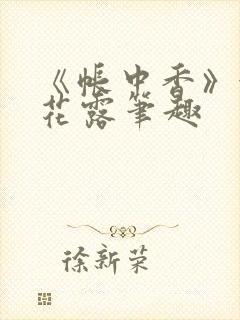 《帐中香》
花露笔趣
徐新荣